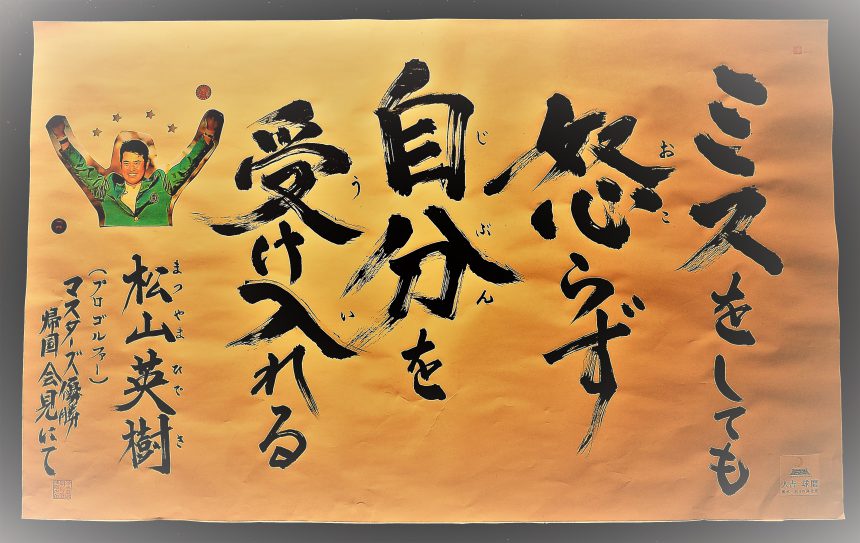 ミスをしても
怒らず
おこ
自分を
じぶん
受け入れる
うい
松山英樹
まつやまひでき
(プロゴルファー)
マスターズ優勝
帰国会見にて
人吉球磨